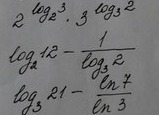 2^{log_2 3} · 3^{log_3 2}
log_2 12 - \frac{1}{log_3 2}
log_3 21 - \frac{ln 7}{ln 3}